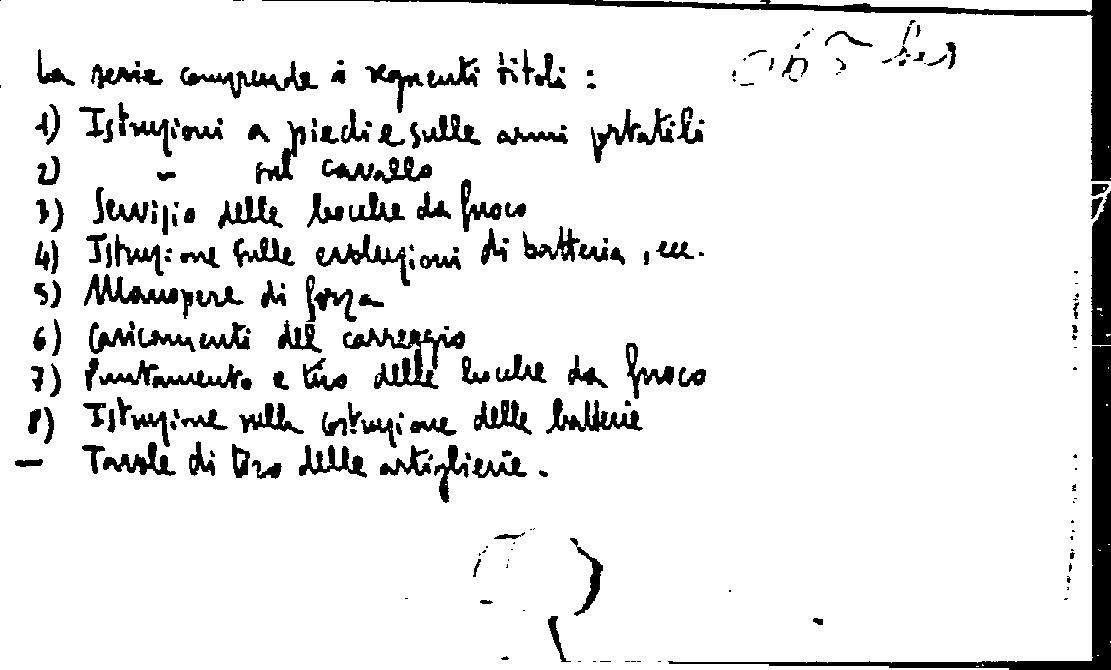 La serie comprende i seguenti titoli :
1) Istruzioni a piedi e sulle armi portatili
2) " sul cavallo
3) Servizio delle bocche da fuoco
4) Istruzione sulle evoluzioni di batteria , ecc.
5) Manopere di forza
6) Caricamenti del carreggio
7) Puntamento e tiro delle bocche da fuoco
8) Istruzione sulla costruzione delle batterie
— Tavole di tiro delle artiglierie .